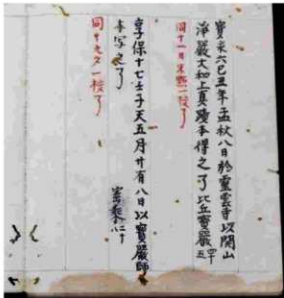 寳永六己丑年孟秋八日於靈雲寺以開山
淨嚴大和上真蹟本得之了比丘寳嚴
同十一日朱點一校了
享保十七壬子天五月廿有八日以寳嚴師
本写之了
同十 一校了